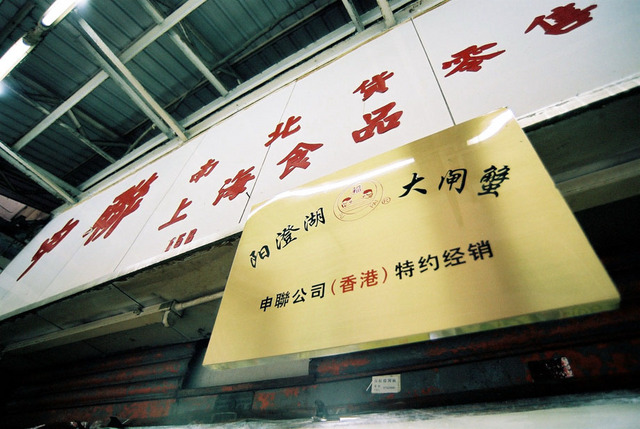 申聯
南北貨
上海食品
零售
阳澄湖 大闸蟹
申聯公司(香港)特约经销